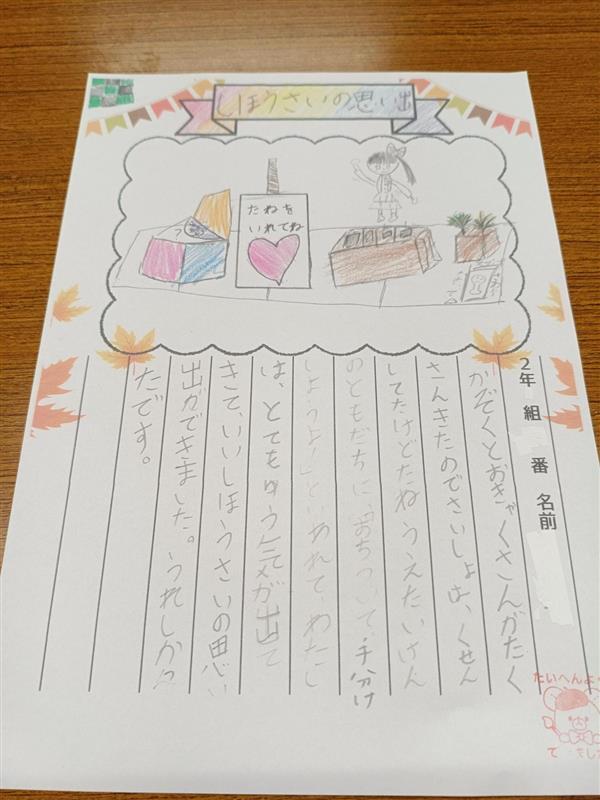 しほうさいの思い出
たねを
いれてね
2年 組 番 名前
かぞくとおきゃくさんがたく
さんきたのでさいしょは、くせん
してたけどたねうえたいけん
のともだちに「おちついて、手分け
しようよ!」といわれて、わたし
は、とてもゆう気が出て
きて、いいしほうさいの思い
出ができました。うれしかっ
たです。
たいへんよ